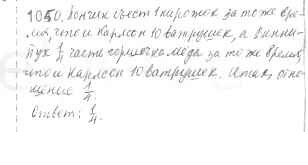 1050. Пончик съест 1 пирожок за то же вре-
мя, что и Карлсон 10 ватрушек, а Винни-
Пух 1/4 часть горшочка меда за то же время,
что и Карлсон 10 ватрушек. Итак, отно-
шение 1/4.
Ответ: 1/4.